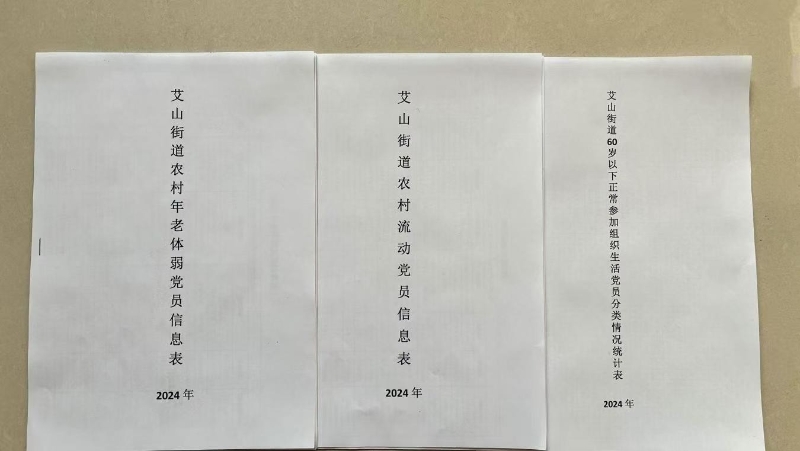 艾山街道农村年老体弱党员信息表
2024 年
艾山街道农村流动党员信息表
2024 年
艾山街道60岁以下正常参加组织生活党员分类情况统计表
2024 年